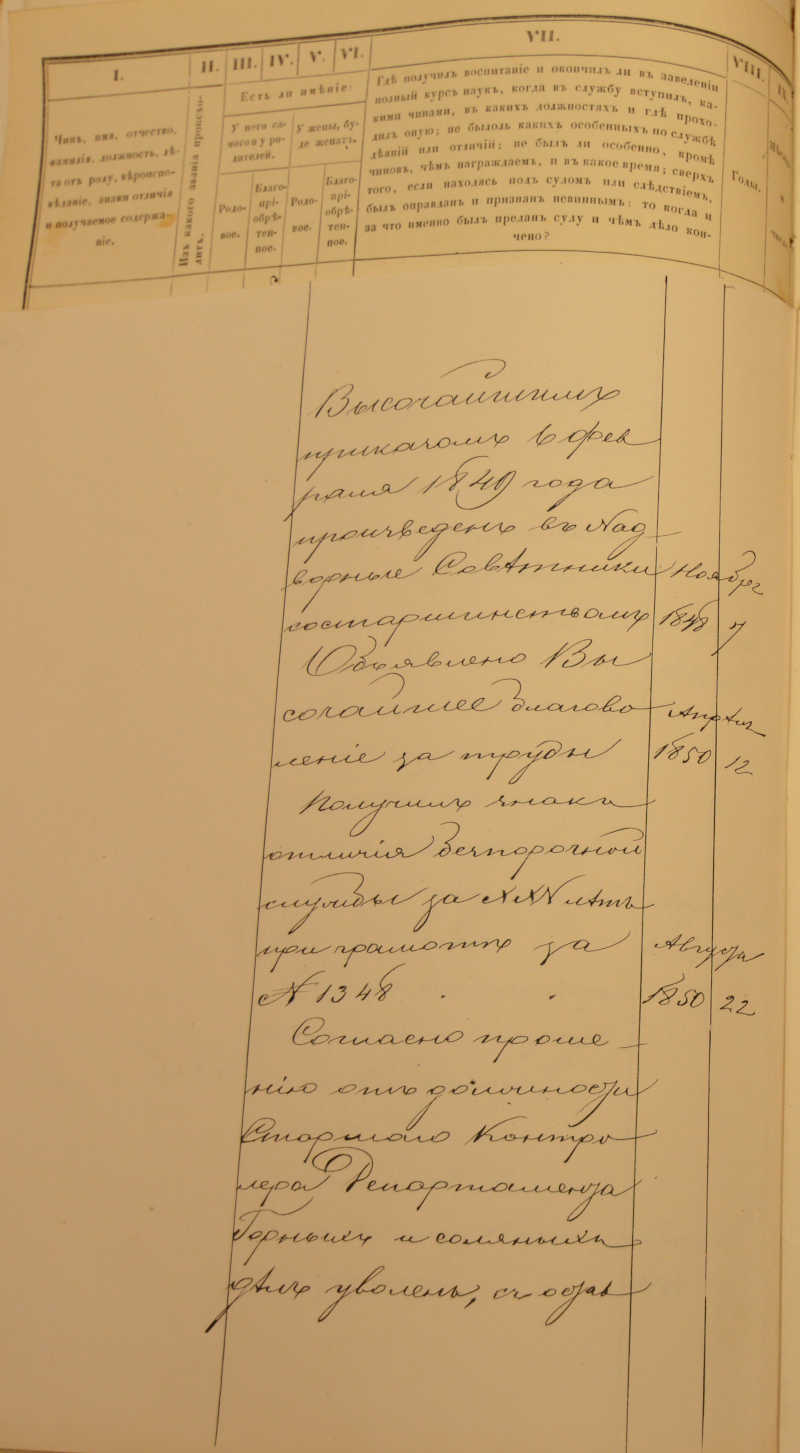 I.
II.
III.
IV.
V.
VI.
VII.
VIII.
Чинъ, имя, отчество,
фамилія, должность, лѣ-
та отъ роду, вѣроиспо-
вѣданіе, знаки отличія
и получаемое содержа-
ніе.
Изъ какого званія происхо-
дитъ.
Есть ли имѣніе:
У него са-
маго и у ро-
дителей.
У жены, бу-
де женатъ.
Родо-
вое.
Благо-
прі-
обрѣ-
тен-
ное.
Родо-
вое.
Благо-
прі-
обрѣ-
тен-
ное.
Гдѣ получилъ воспитаніе и окончилъ ли въ заведеніи
полный курсъ наукъ, когда въ службу вступилъ, ка-
кими чинами, въ какихъ должностяхъ и гдѣ прохо-
дилъ оную; не былоль какихъ особенныхъ по службѣ
дѣяній или отличій; не былъ ли особенно, кромѣ
чиновъ, чѣмъ награждаемъ, и въ какое время; сверхъ
того, если находясь подъ судомъ или слѣдствіемъ,
былъ оправданъ и признанъ невиннымъ: то когда и
за что именно былъ преданъ суду и чѣмъ дѣло кон-
чено?
Годы.
Высочайшимъ
приказомъ 6 фев
раля 1849 года
произведенъ въ Над
ворные Совѣтники
со старшинствомъ
Ноябр
1848 7
Объявлено Вы
сочайшее благово
леніе за труды
Апрѣл
1850 12
Получилъ знакъ
отличія безпорочной
службы за XXV лѣтъ
при грамотѣ за
№ 1348
Августа
1850 22
Согласно проше
нію отъ должности
Старшаго Контро
лера Департамента
Горныхъ и соляныхъ
дѣлъ уволенъ, съ остав